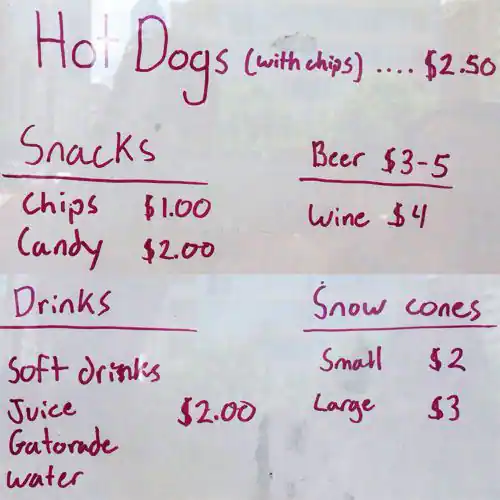 Hot Dogs (with chips) .... $2.50
Snacks
Chips $1.00
Candy $2.00
Beer $3-5
Wine $4
Drinks
Soft drinks
Juice $2.00
Gatorade
water
Snow cones
Small $2
Large $3